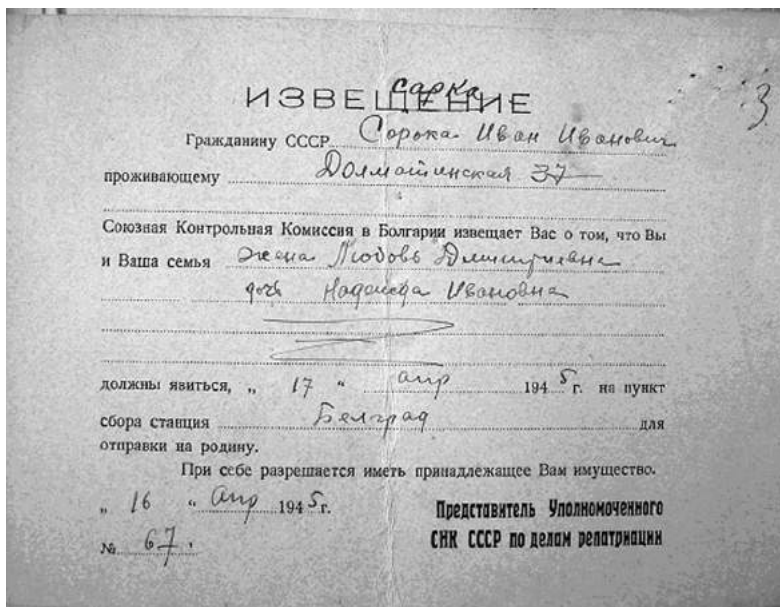 Сарка
ИЗВЕЩЕНИЕ
3
Гражданину СССР Сорока Иван Иванович
проживающему Долматинская 37
Союзная Контрольная Комиссия в Болгарии извещает Вас о том, что Вы
и Ваша семья жена Любовь Дмитриевна
дочь Надежда Ивановна
должны явиться, „ 17 “ апр 1945 г. на пункт
сбора станция Белград для
отправки на родину.
При себе разрешается иметь принадлежащее Вам имущество.
„ 16 “ Апр 1945 г.
Представитель Уполномоченного
СНК СССР по делам репатриации
№ 67